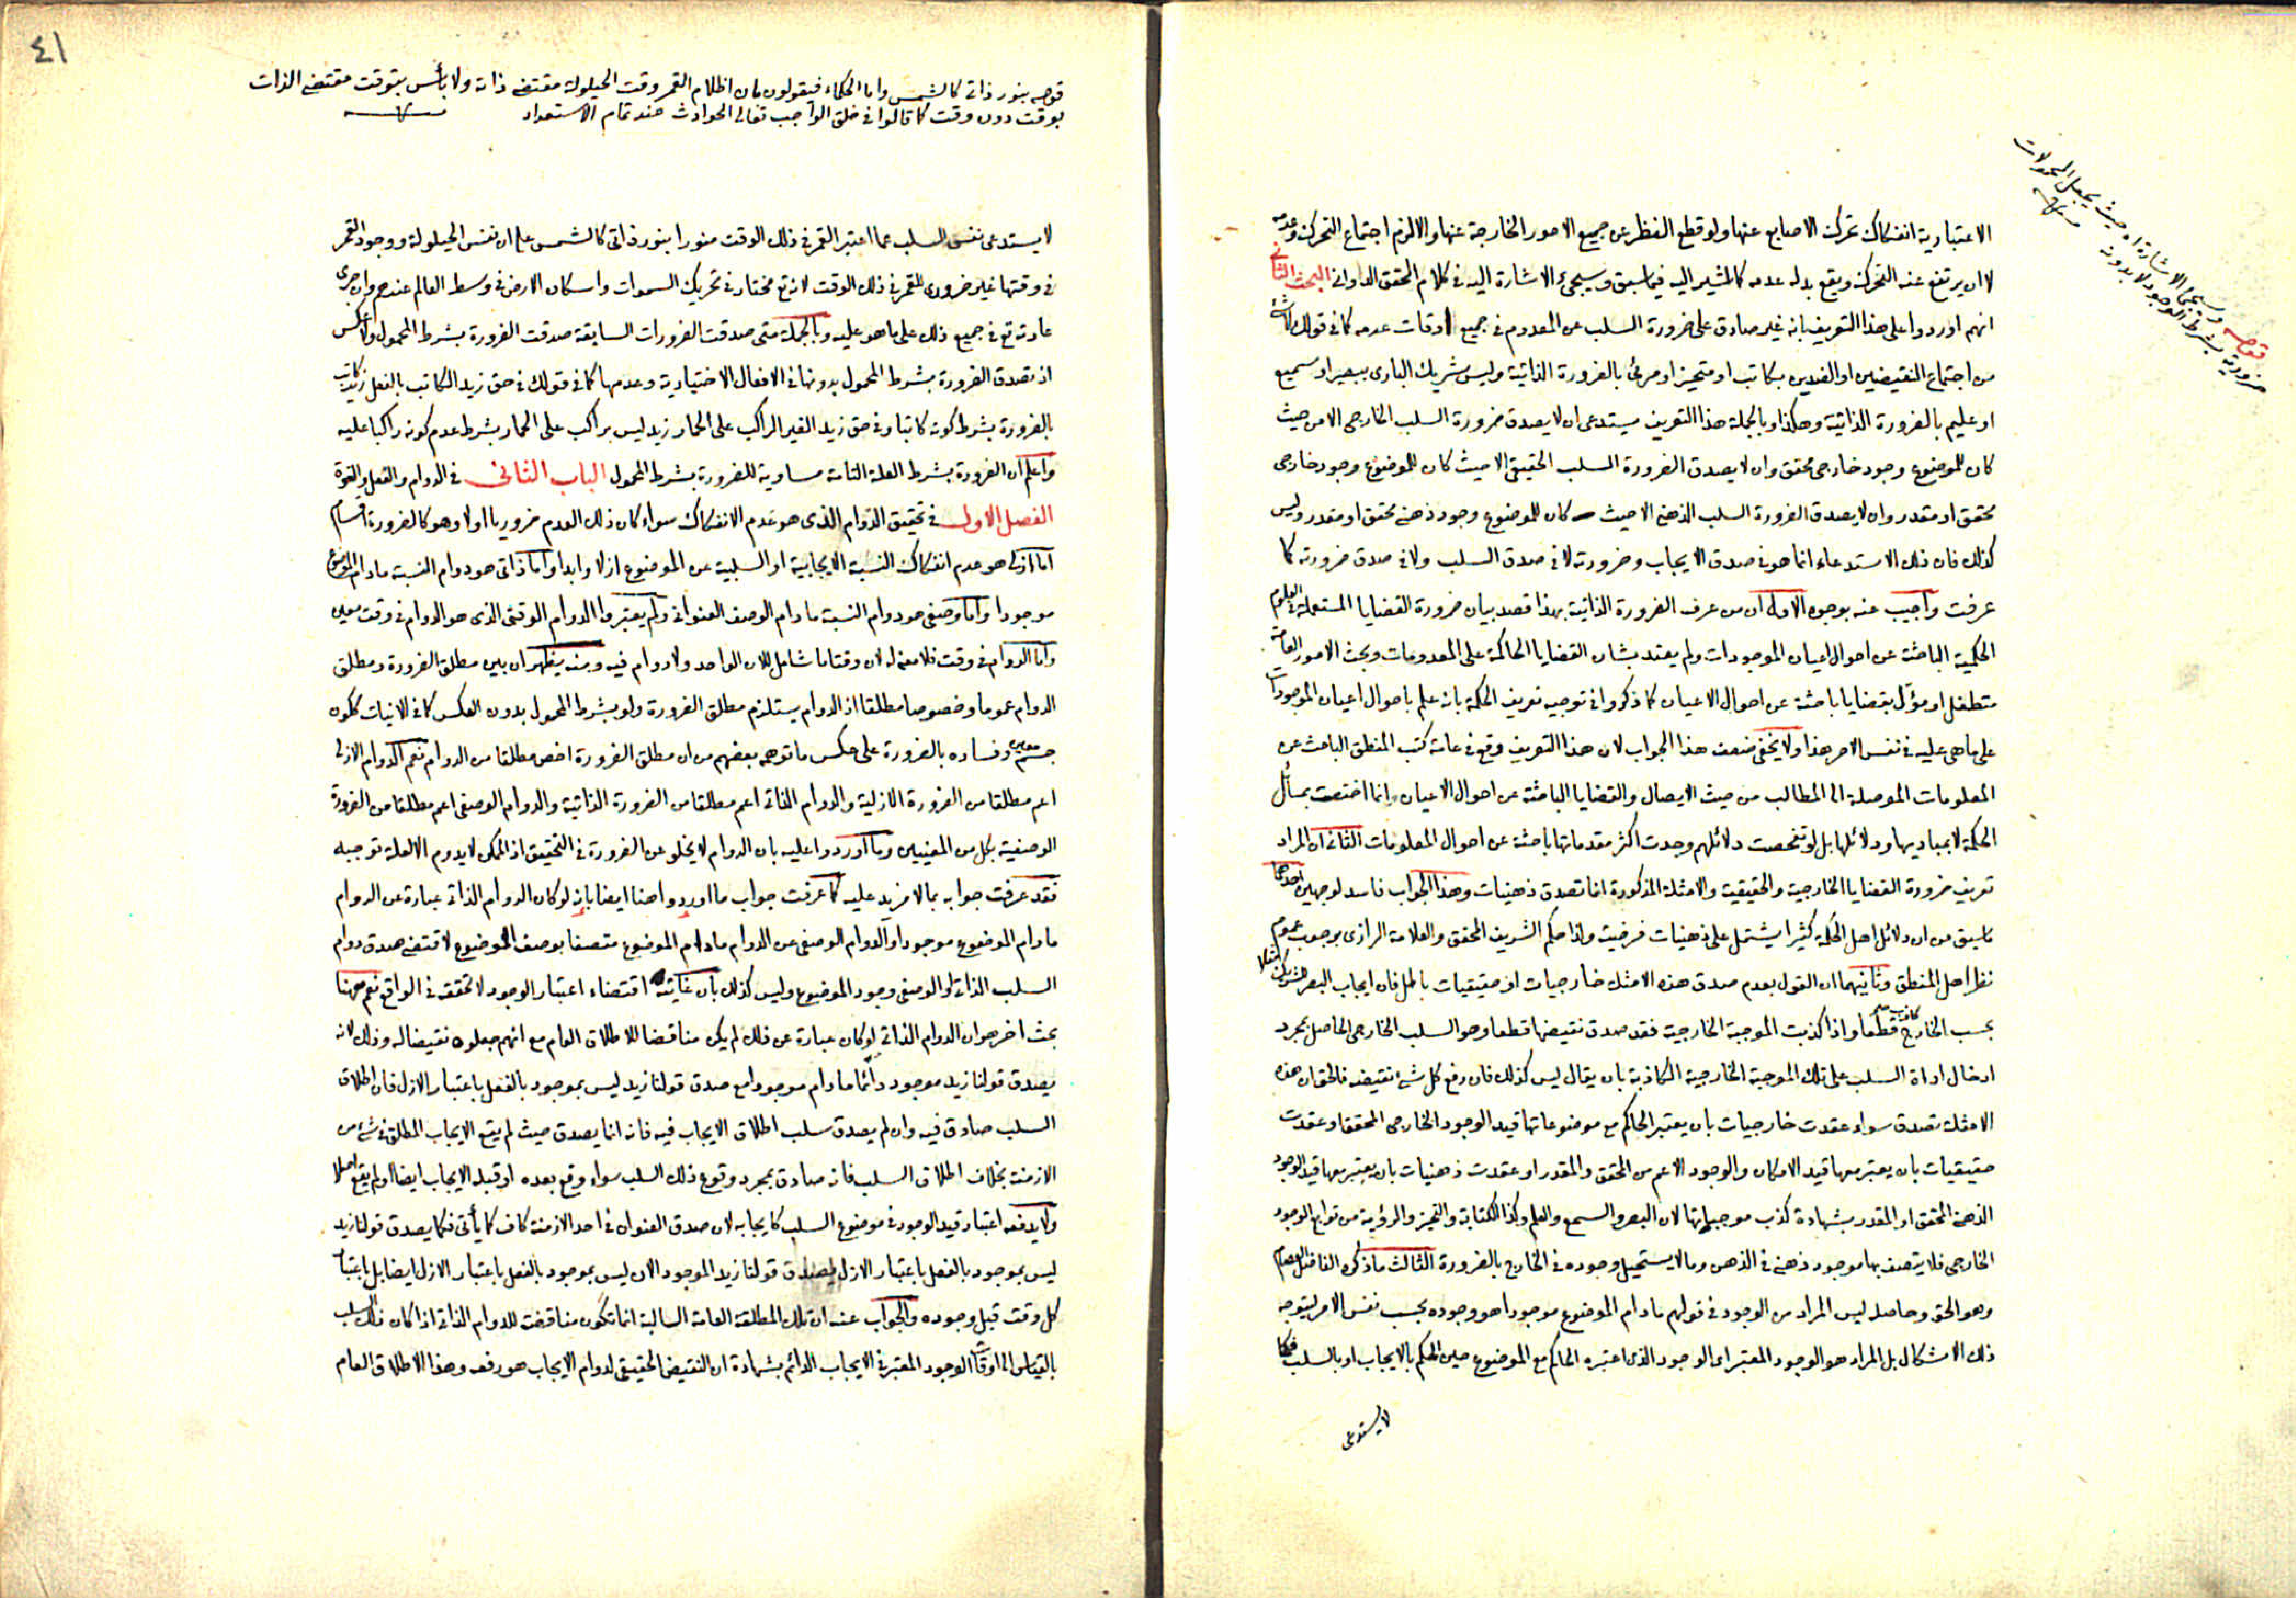 قوله وسيجئ الاشارة اه حيث يجعل المحمولات
ضرورية بشرط الوجود لا بدونه منه
الاعتبارية انفكاك تحرك الاصابع عنها ولو قطع النظر عن جميع الامور الخارجة عنها والا لزم اجتماع التحرك وعدمه
لا ان يرتفع عنه التحرك ويقع بدله عدمه كالمشير اليه فيما سبق وسيجئ الاشارة اليه في كلام المحقق الدواني البحث الثاني
انهم اوردوا على هذا التعريف بانه غير صادق على ضرورة السلب عن المعدوم في جميع اوقات عدمه كما في قولك لا شئ
من اجتماع النقيضين او الضدين بكاتب او متحيز او مرئى بالضرورة الذاتية وليس شريك البارى ببصير او سميع
او عليم بالضرورة الذاتية وهكذا وبالجملة هذا التعريف يستدعى ان لا يصدق ضرورة السلب الخارجى الا من حيث
كان للموضوع وجود خارجى محقق وان لا يصدق الضرورة السلب الحقيقى الا حيث كان للموضوع وجود خارجى
محقق او مقدر وان لا يصدق الضرورة السلب الذهنى الا حيث كان للموضوع وجود ذهنى محقق او مقدر وليس
كذلك فان ذلك الاستدعاء انما هو في صدق الايجاب وضرورته لا في صدق السلب ولا في صدق ضرورته كما
عرفت واجيب عنه بوجوه الاول ان من عرف الضرورة الذاتية بهذا قصد بيان ضرورة القضايا المستعملة في العلوم
الحكمية الباحثة عن احوال اعيان الموجودات ولم يعتد بشان القضايا الحاكمة على المعدومات وبحث الامور العامة
متطفل او مؤل بقضايا باحثة عن احوال الاعيان كما ذكروا في توجيه تعريف الحكمة بانه علم باحوال اعيان الموجودات
على ما هى عليه في نفس الامر هذا ولا يخفى ضعف هذا الجواب لان هذا التعريف وقع في عامة كتب المنطق الباحث عن
المعلومات الموصلة الى المطالب من حيث الايصال والقضايا الباحثة عن احوال الاعيان انما اختصت بمسائل
الحكمة لا بمباديها ودلائلها بل لو تفحصت دلائلهم وجدت اكثر مقدماتها باحثة عن احوال المعلومات الثانى ان المراد
تعريف ضرورة القضايا الخارجية والحقيقية والامثلة المذكورة انما تصدق ذهنيات وهذا الجواب فاسد لوجهين احدهما
ما سبق من ان دلائل اهل الحكمة كثيرا يشتمل على ذهنيات فرضية ولذا حكم الشريف المحقق والعلامة الرازى بوجوب عموم
نظر اهل المنطق وثانيهما ان القول بعدم صدق هذه الامثلة خارجيات او حقيقيات باطل فان ايجاب البصر لشريك مثلا
بحسب الخارج كاذب قطعا واذا كذبت الموجبة الخارجية فقد صدق نقيضها قطعا وهو السلب الخارجى الحاصل بمجرد
ادخال اداة السلب على تلك الموجبة الخارجية الكاذبة بان يقال ليس كذلك فان رفع كل شئ نقيضه فالحق ان هذه
الامثلة تصدق سواء عقدت خارجيات بان يعتبر الحاكم مع موضوعاتها قيد الوجود الخارجى المحقق او عقدت
حقيقيات بان يعتبر معها قيد الامكان والوجود الاعم من المحقق والمقدر او عقدت ذهنيات بان يعتبر معها قيد الوجود
الذهنى المحقق او المقدر بشهادة كذب موجباتها لان البصر والسمع والعلم وكذا الكتابة والتحيز والرؤية من توابع الوجود
الخارجى فلا يتصف بها موجود ذهنى في الذهن وما لا يستحيل وجوده في الخارج بالضرورة الثالث ما ذكره الفاضل العصام
وهو الحق وحاصله ليس المراد من الوجود في قولهم ما دام الموضوع موجودا هو وجوده بحسب نفس الامر ليتوجه
ذلك الاشكال بل المراد هو الوجود المعتبر اى الوجود الذى اعتبره الحاكم مع الموضوع حين الحكم بالايجاب او بالسلب فكما
لا يستدعى
٤١
قوله بنور ذاتى كالشمس واما الحكماء فيقولون بان اظلام القمر وقت الحيلولة مقتضى ذاته ولا بأس بتوقت مقتضى الذات
بوقت دون وقت كما قالوا في خلق الواجب تعالى الحوادث عند تمام الاستعداد منه
لا يستدعى نفس السلب عما اعتبر القمر في ذلك الوقت منورا بنور ذاتى كالشمس على ان نفس الحيلولة ووجود القمر
في وقتها غير ضرورى للقمر في ذلك الوقت لانه تع مختار في تحريك السموات واسكان الارض في وسط العالم عندهم وان جرى
عادته تع في جميع ذلك على ما هو عليه وبالجملة متى صدقت الضرورات السابقة صدقت الضرورة بشرط المحمول ولا عكس
اذ تصدق الضرورة بشرط المحمول بدونها في الافعال الاختيارية وعدمها كما في قولك في حق زيد الكاتب بالفعل زيد كاتب
بالضرورة بشرط كونه كاتبا وفي حق زيد الغير الراكب على الحمار زيد ليس براكب على الحمار بشرط عدم كونه راكبا عليه
واعلم ان الضرورة بشرط العلة التامة مساوية للضرورة بشرط المحمول الباب الثانى في الدوام والفعل والقوة
الفصل الاول في تحقيق الدوام الذى هو عدم الانفكاك سواء كان ذلك العدم ضروريا اولا وهو كالضرورة اقسام
اما ازلى هو عدم انفكاك النسبة الايجابية او السلبية عن الموضوع ازلا وابدا واما ذاتى هو دوام النسبة ما دام الموضوع
موجودا واما وصفى هو دوام النسبة ما دام الوصف العنوانى ولم يعتبروا الدوام الوقتى الذى هو الدوام في وقت معين
واما الدوام في وقت فلا معنى له لان وقتا ما شامل للان الواحد ولا دوام فيه ومنه يظهر ان بين مطلق الضرورة ومطلق
الدوام عموما وخصوصا مطلقا اذ الدوام يستلزم مطلق الضرورة ولو بشرط المحمول بدون العكس كما في الانيات ككون
جسم معين وفساده بالضرورة على عكس ما توهمه بعضهم من ان مطلق الضرورة اخص مطلقا من الدوام نعم الدوام الازلى
اعم مطلقا من الضرورة الازلية والدوام الذاتى اعم مطلقا من الضرورة الذاتية والدوام الوصفى اعم مطلقا من الضرورة
الوصفية بكل من المعنيين وما اوردوا عليه بان الدوام لا يخلو عن الضرورة في التحقيق اذ الممكن لا يدوم الا لعلة توجبه
فقد عرفت جوابه بما لا مزيد عليه كما عرفت جواب ما اوردوا هنا ايضا بانه لو كان الدوام الذاتى عبارة عن الدوام
ما دام الموضوع موجودا والدوام الوصفى عن الدوام ما دام الموضوع متصفا بوصف الموضوع لاقتضى صدق دوام
السلب الذاتى او الوصفى وجود الموضوع وليس كذلك بان غايته اقتضاء اعتبار الوجود لا تحققه في الواقع نعم ههنا
بحث اخر هو ان الدوام الذاتى لو كان عبارة عن ذلك لم يكن مناقضا للاطلاق العام مع انهم جعلوه نقيضا له وذلك لانه
يصدق قولنا زيد موجود دائما ما دام موجودا مع صدق قولنا زيد ليس بموجود بالفعل باعتبار الازل فان اطلاق
السلب صادق فيه وان لم يصدق سلب اطلاق الايجاب فيه فانه انما يصدق حيث لم يقع الايجاب المطلق في شئ من
الازمنة بخلاف اطلاق السلب فانه صادق بمجرد وقوع ذلك السلب سواء وقع بعده او قبله الايجاب ايضا او لم يقع اصلا
ولا يدفعه اعتبار قيد الوجود في موضوع السلب كايجابه لان صدق العنوان في احد الازمنة كاف كما يأتى فكما يصدق قولنا زيد
ليس بموجود بالفعل باعتبار الازل يصدق قولنا زيد الموجود الان ليس بموجود بالفعل باعتبار الازل ايضا بل باعتبار
كل وقت قبل وجوده والجواب عنه ان تلك المطلقة العامة السالبة انما تكون مناقضة للدوام الذاتى اذا كان ذلك السلب
بالقياس الى اوقات الوجود المعتبر في الايجاب الدائم بشهادة ان النقيض الحقيقى لدوام الايجاب هو رفعه وهذا الاطلاق العام